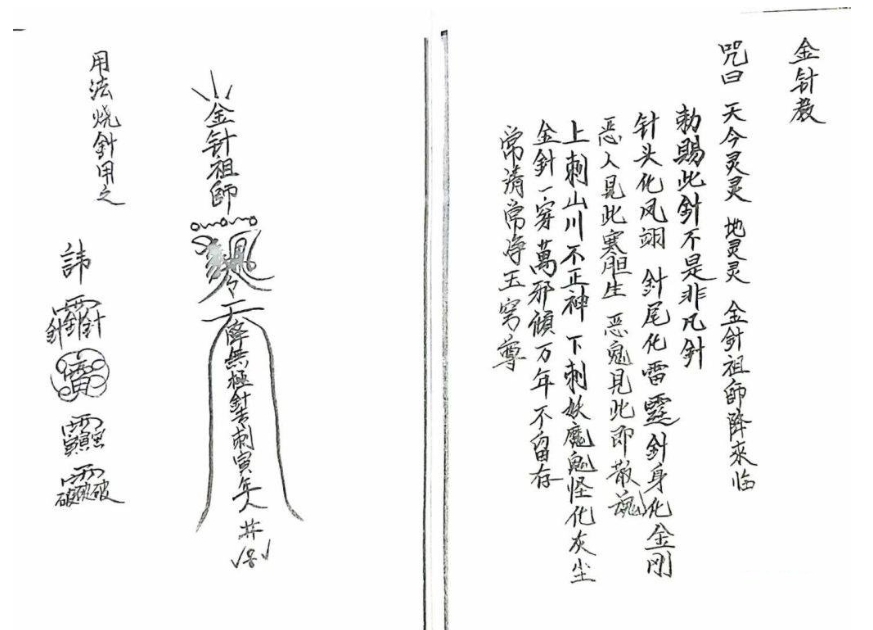 金针教
咒曰 天今灵灵 地灵灵 金針祖師降來临
勅賜此針不是非凡针
针头化凤翊 針尾化雷霆針身化金刚
恶人見此寒胆生 恶鬼見此即散魂
上刺山川不正神 下刺妖魔鬼怪化灰尘
金針一穿萬邪傾万年不留存
常清常净玉穷尊
金针祖師
令天降無極針去刺寅年人
用法烧針用之
諱